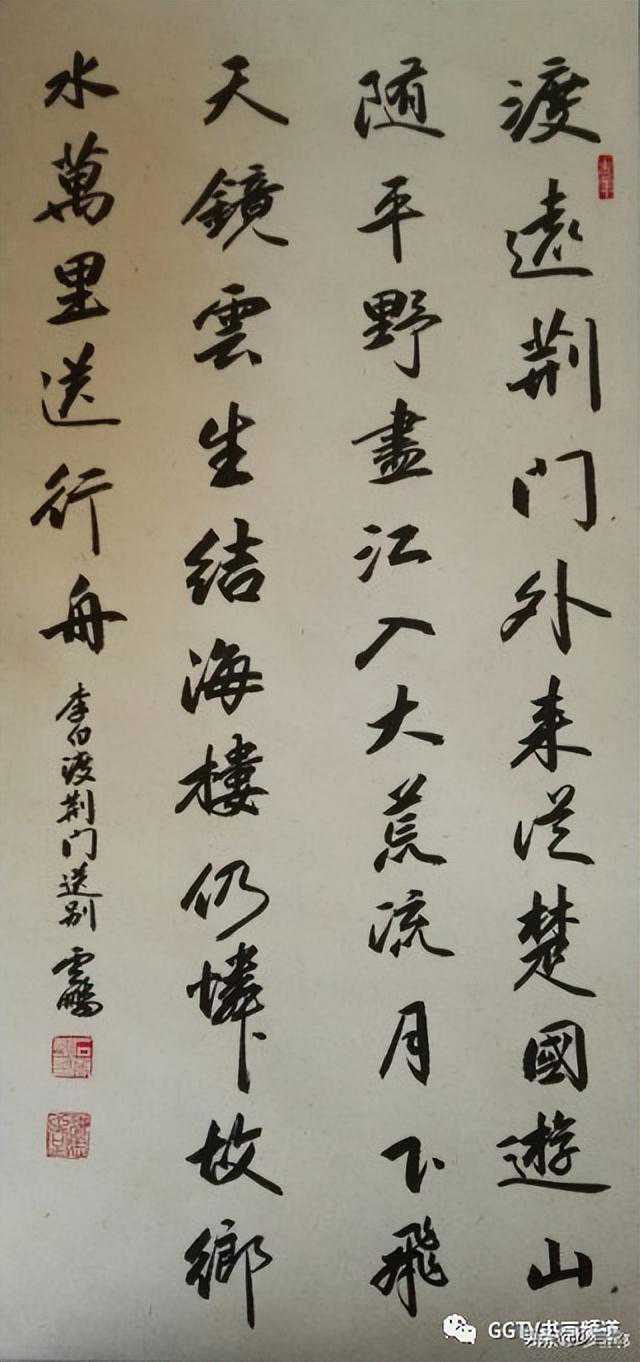 渡遠荆门外来從楚國遊山
随平野盡江入大荒流月下飛
天鏡雲生結海樓仍憐故鄉
水萬里送行舟
李白渡荆门送别 雲鵬
GGTV书画频道